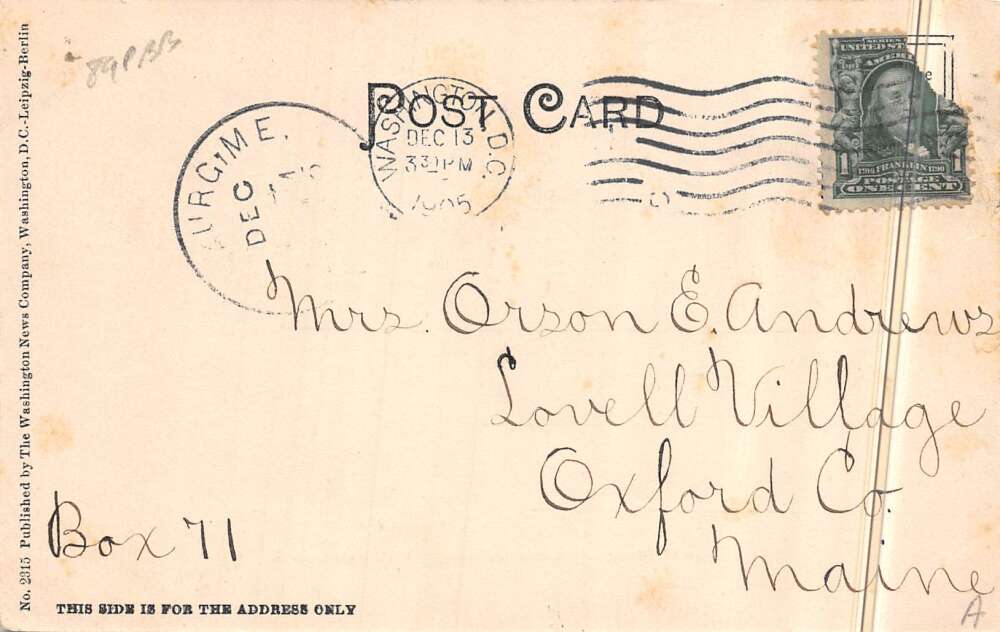 No. 2315 Published by The Washington News Company, Washington, D.C.-Leipzig-Berlin
POST CARD
WASHINGTON, D.C.
DEC 13
PM
1905
ME.
DEC
SERIES
UNITED ST
AMERI
1
1
1706 FRANKLIN 1790
ONE CENT
Mrs. Orson E. Andrews
Lovell Village
Oxford Co.
Maine
Box 71
THIS SIDE IS FOR THE ADDRESS ONLY
A